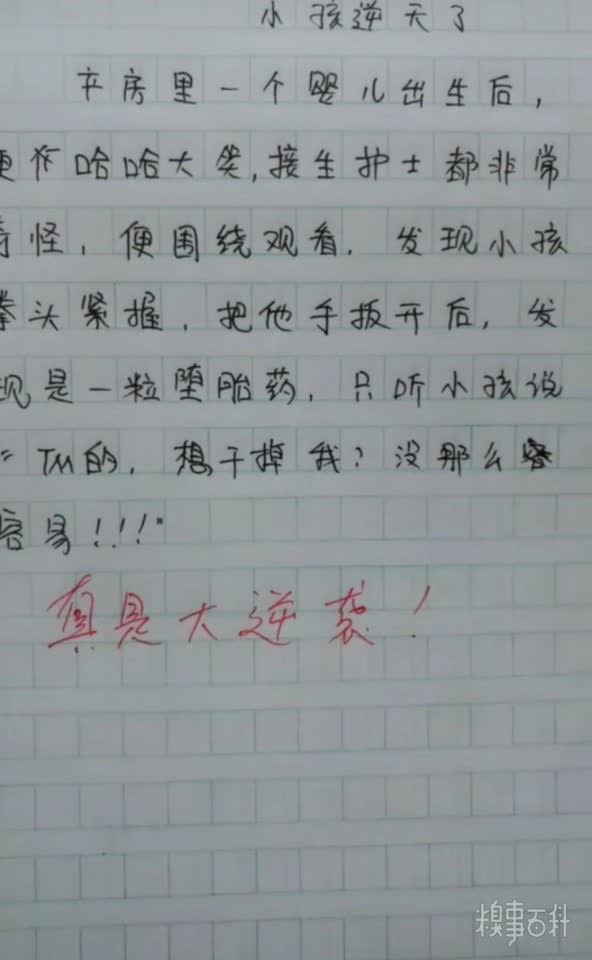 小孩逆天了
产房里一个婴儿出生后，
便在哈哈大笑,接生护士都非常
奇怪，便围绕观看．发现小孩
拳头紧握，把他手扳开后，发
现是一粒堕胎药，只听小孩说
“TM的，想干掉我？没那么
容易！！！”
真是大逆袭！
糗事百科